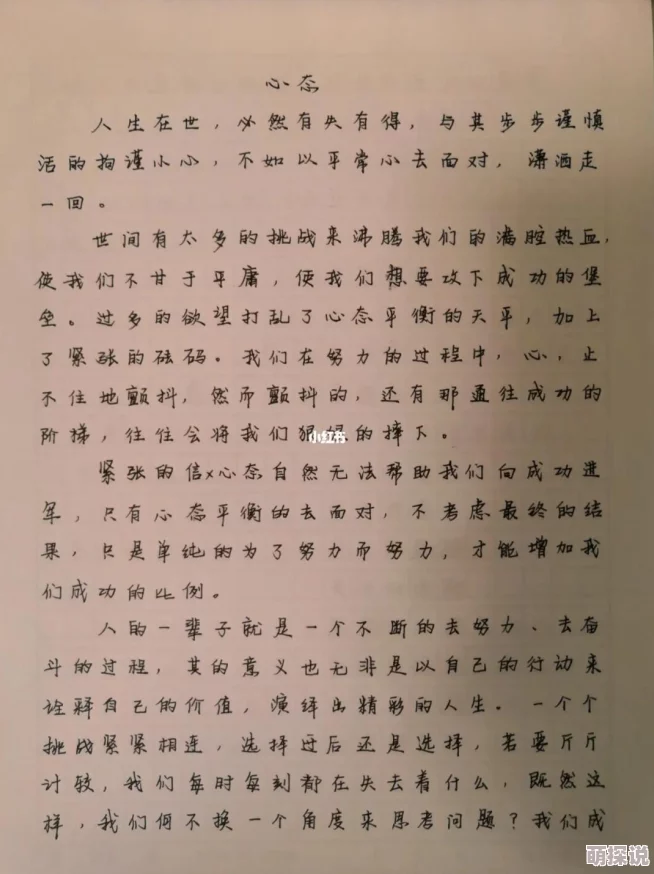 心态
人生在世，必然有失有得，与其步步谨慎
活的拘谨小心，不如以平常心去面对，潇洒走
一回。
世间有太多的挑战来沸腾我们的满腔热血，
使我们不甘于平庸，使我们想要攻下成功的堡
垒。过多的欲望打乱了心态平衡的天平，加上
了紧张的砝码。我们在努力的过程中，心，止
不住地颤抖，然而颤抖的，还有那通往成功的
阶梯，往往会将我们狠狠的摔下。
小红书
紧张的信x心态自然无法帮助我们向成功进
军，只有心态平衡的去面对，不考虑最终的结
果，只是单纯的为了努力而努力，才能增加我
们成功的比例。
人的一辈子就是一个不断的去努力、去奋
斗的过程，其的意义也无非是以自己的行动来
诠释自己的价值，演绎出精彩的人生。一个个
挑战紧紧相连，选择过后还是选择，若要斤斤
计较，我们每时每刻都在失去着什么，既然这
样，我们何不换一个角度来思考问题？我们成
萌探说